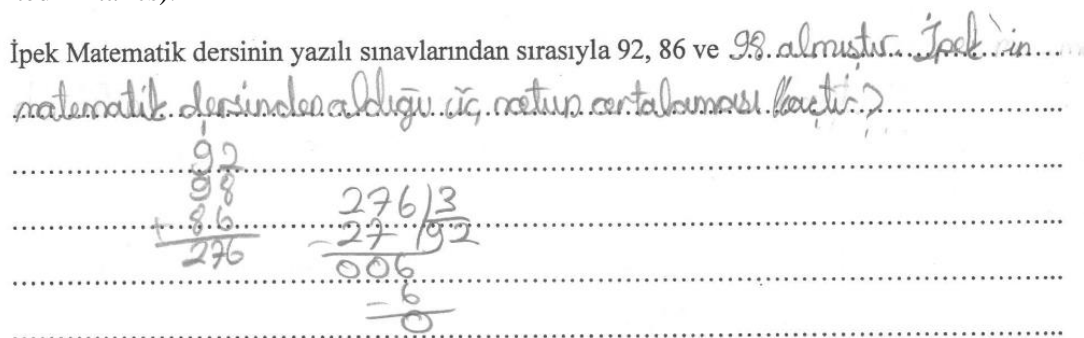 İpek Matematik dersinin yazılı sınavlarından sırasıyla 92, 86 ve 98 almıştır. İpek'in
matematik dersinden aldığı üç notun ortalaması kaçtır?
92
98
+ 86
276
276 3
- 27 92
006
- 6
0